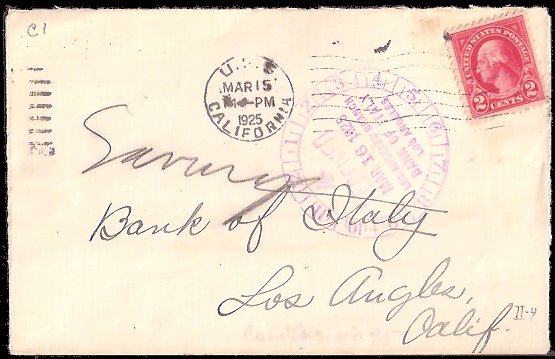 C1
U.S.S.
MAR 15
PM
1925
CALIFORNIA
UNITED STATES POSTAGE
2 CENTS 2
MAR 16 1925
BANK OF ITALY
LOS ANGELES
Savings
Bank of Italy
Los Angles,
Calif.
II-4